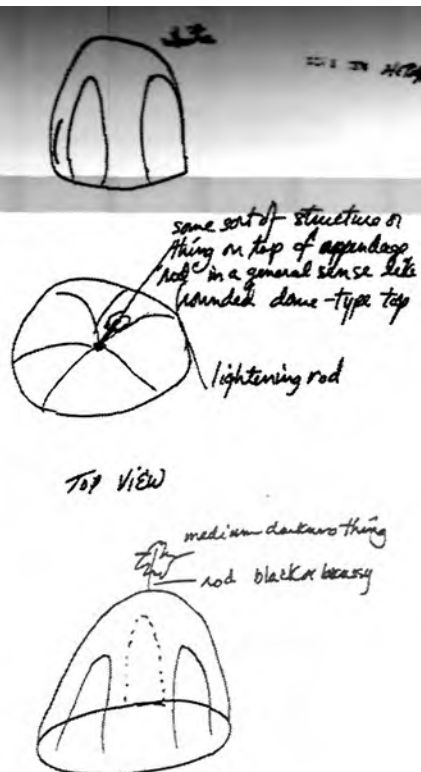 some sort of structure or
thing on top of appendage
rod in a general sense like
rounded dome-type top
lightening rod
TOP VIEW
medium darkness thing
rod black or brassy